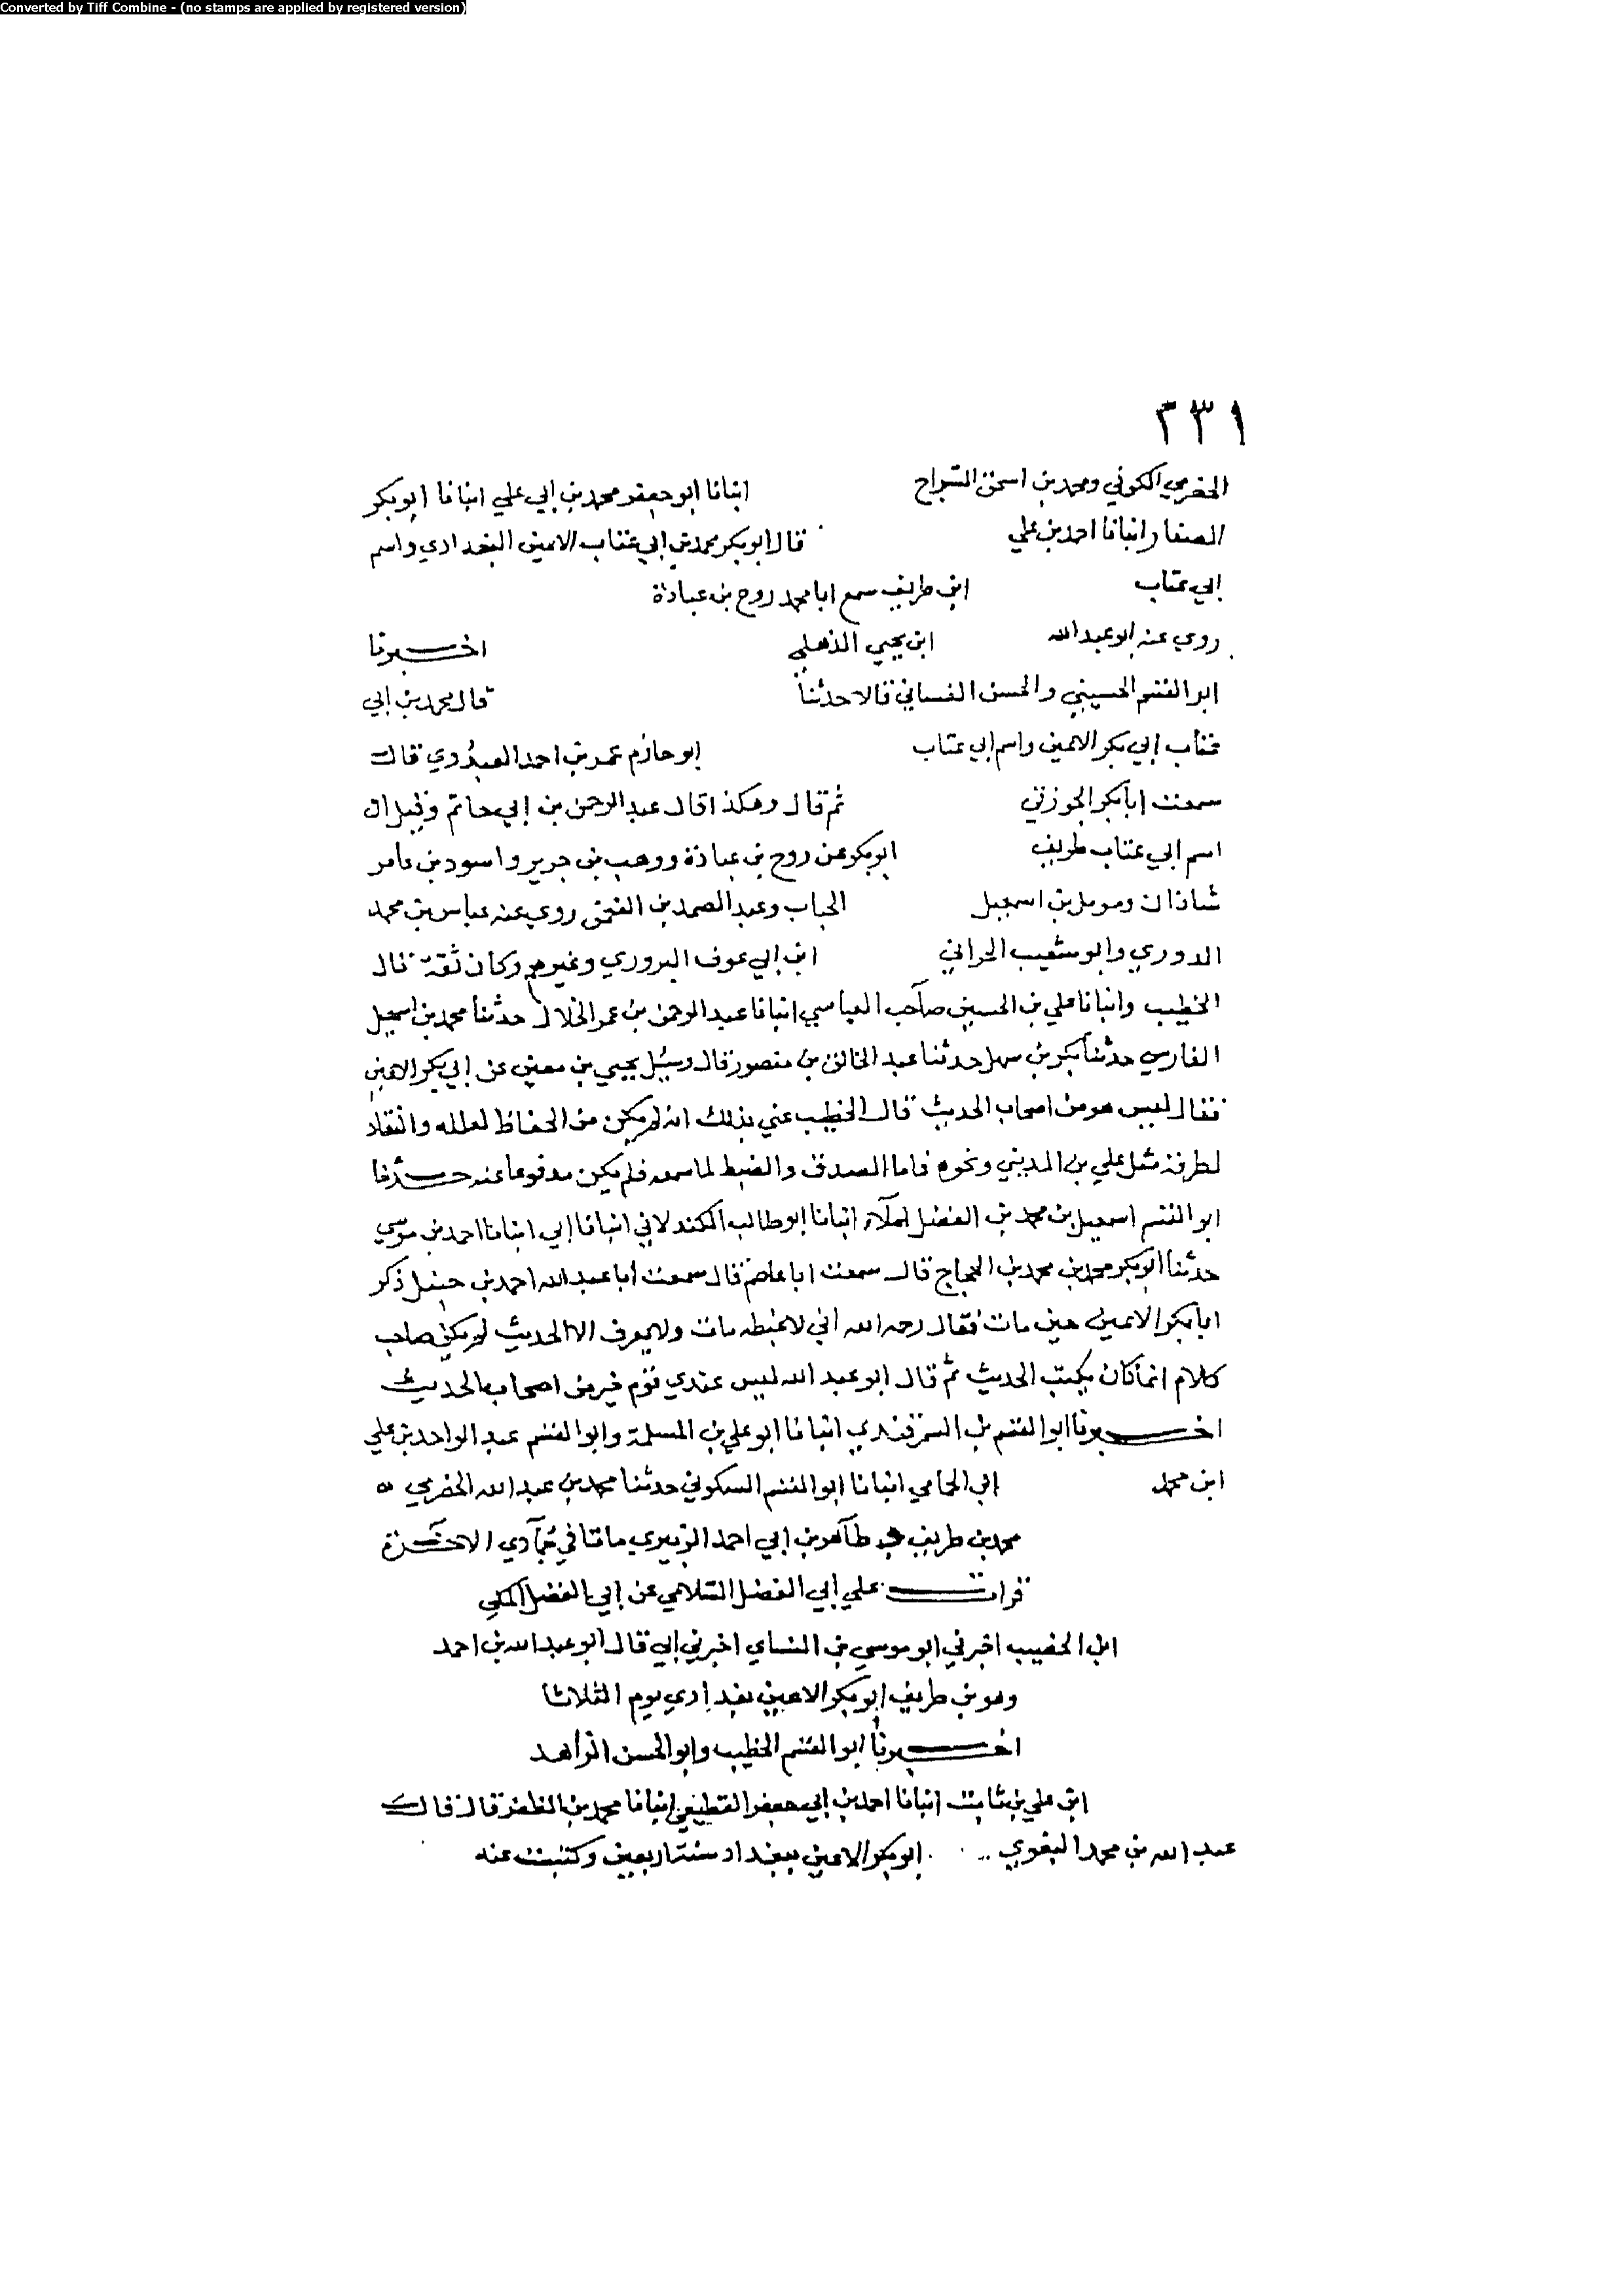 Converted by Tiff Combine - (no stamps are applied by registered version)
٢٣١
الحضرمي الكوفي ومحمد بن اسحق السراج انبانا ابو جعفر محمد بن ابي علي انبانا ابو بكر
الصفار انبانا احمد بن علي قال ابو بكر محمد بن ابي عتاب الاعين البغدادي واسم
ابي عتاب ابن طريف سمع ابا محمد روح بن عبادة
روي عنه ابو عبد الله ابن يحيي الذهلي اخبرنا
ابو القسم الحسيني والحسن الغساني قالا حدثنا قال محمد بن ابي
عتاب ابي بكر الاعين واسم ابي عتاب ابو حازم عمر بن احمد العبدُوي قال
سمعت ابا بكر الجوزقي ثم قال وهكذا قال عبد الرحمن بن ابي حاتم وقيل ان
اسم ابي عتاب طريف ابو بكر عن روح بن عبادة ووهب بن جرير واسود بن عامر
شاذان ومومل بن اسمعيل الحباب وعبد الصمد بن النعمن روي عنه عباس بن محمد
الدوري وابو شعيب الحراني ابن ابي عوف البزوري وغيرهم وكان ثقة قال
الخطيب وانبانا علي بن الحسين صاحب العباسي انبانا عبد الرحمن بن عمر الخلال حدثنا محمد بن اسمعيل
الفارسي حدثنا بكر بن سهل حدثنا عبد الخالق بن منصور قال وسئل يحيي بن معين عن ابي بكر الاعين
فقال ليس هو من اصحاب الحديث قال الخطيب عني بذلك انه لم يكن من الحفاظ لعلله والنقاد
لطرقه مثل علي بن المديني ونحوه فاما الصدق والضبط لما سمعه فلم يكن مدفوعا عنه حدثنا
ابو القسم اسمعيل بن محمد بن الفضل املاء انبانا ابو طالب الكندلاني انبانا ابي انبانا احمد بن موسي
حدثنا ابو بكر محمد بن محمد بن الحجاج قال سمعت ابا عاصم قال سمعت ابا عبد الله احمد بن حنبل ذكر
ابا بكر الاعين حين مات فقال رحمه الله اني لاغبطه مات ولا يعرف الا الحديث لم يكن صاحب
كلام انما كان يكتب الحديث ثم قال ابو عبد الله ليس عندي قوم خير من اصحاب الحديث
اخبرنا ابو القسم بن السمرقندي انبانا ابو علي بن المسلمة وابو القسم عبد الواحد بن علي
ابن محمد ابن الحمامي انبانا ابو القسم السكوني حدثنا محمد بن عبد الله الحضرمي
محمد بن طريف طاهر بن ابي احمد الزبيري ماتا في جمادي الاخرة
قرات علي ابي الفضل السلامي عن ابي الفضل المكي
ابن الخصيب اخبرني ابو موسي بن النساي اخبرني ابي قال ابو عبد الله بن احمد
وهو بن طريف ابو بكر الاعين بغدادي يوم الثلاثا
اخبرنا ابو القسم الخطيب وابو الحسن الزاهد
ابن علي بن ثابت انبانا احمد بن ابي جعفر القطيعي انبانا محمد بن المظفر قال قال
عبد الله بن محمد البغوي ابو بكر الاعين ببغداد سنة اربعين وكتبت عنه